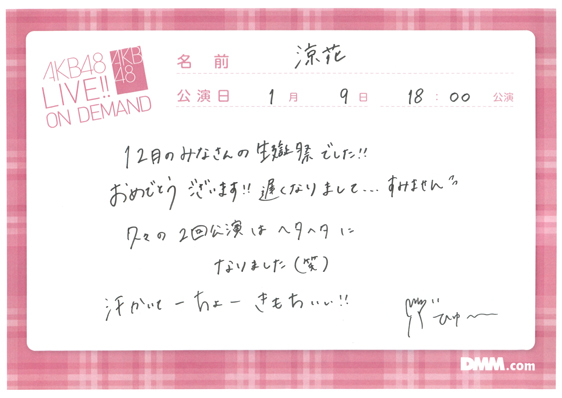 AKB48
LIVE!!
ON DEMAND
AKB
48
名前 涼花
公演日 1月 9日 18:00 公演
12月のみなさんの生誕祭でした!!
おめでとうございます!! 遅くなりまして...すみません
久々の2回公演はヘタヘタに
なりました(笑)
汗かいてーちょーきもちいい!!
びゅ〜
DMM.com